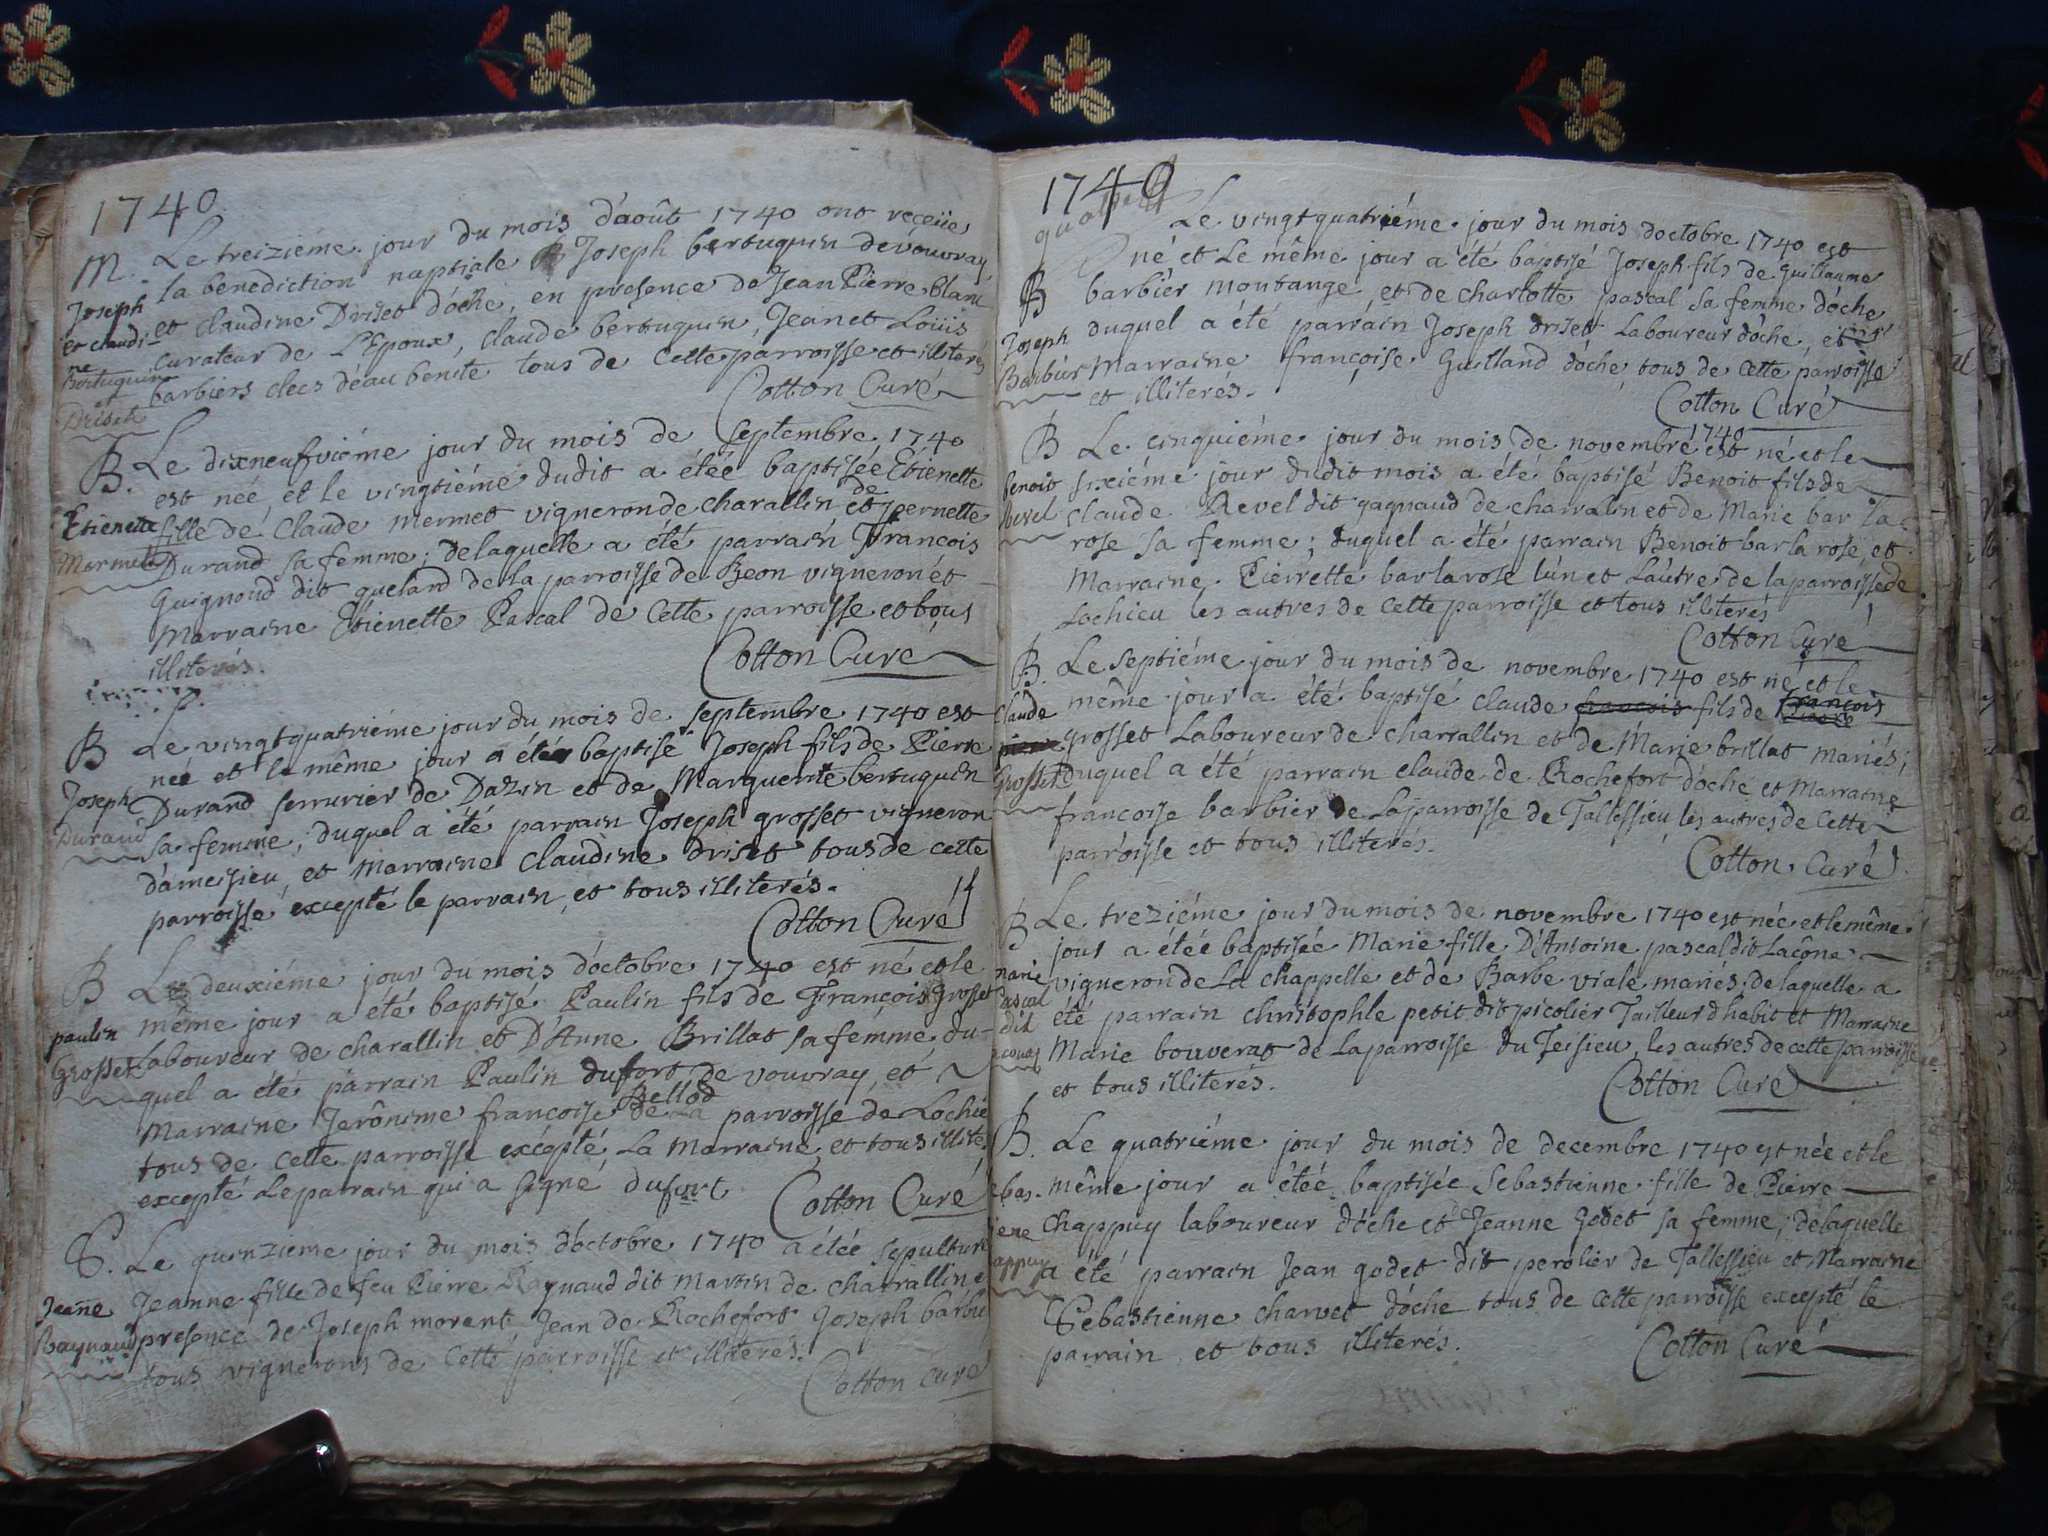 1740
M. Le treiziéme jour du mois d'août 1740 ont receüe
la benediction nuptiale Joseph bertuquin de vouvray
Joseph et claudine Driset d'oche, en presence de Jean Pierre blanc
et claudine curateur de L'Epoux, claude bertuquin, Jean et Loüis
Bertuquin barbiers clecs d'eau benite tous de cette parroisse et illiteres
et Driset
Cotton Curé
B. Le dixneufviéme jour du mois de septembre 1740
est née et le vingtiéme dudit a étée baptisée Etienette
Etienette fille de Claude Mermet vigneron de charallin et de pernette
Mermet Durand sa femme; de laquelle a été parrain François
Guignond dit gueland de la parroisse de Beon vigneron et
Marraine Etienette Pascal de Cette parroisse et tous
illiterés.
Cotton Curé
B Le vingtquatriéme jour du mois de septembre 1740 est
née et le même jour a été baptisé Joseph fils de Pierre
Joseph Durand serrurier de Dazin et de Marguerite bertuquin
Durand sa femme; duquel a été parrain Joseph grosset vigneron
d'ameisieu et Marraine Claudine driset tous de cette
parroisse excepté le parrain, et tous illiterés.
Cotton Curé
B Le deuxiéme jour du mois d'octobre 1740 est né et le
même jour a été baptisé Paulin fils de François Grosset
paulin Laboureur de charallin et D'Anne Brillat sa femme du-
Grosset quel a été parrain Paulin dufort de vouvray, et
Marraine Jerônime françoise Bellod de La parroisse de Lochie
tous de cette parroisse excépté La Marraine, et tous illite.
excepté Le parrain qui a signé dufort
Cotton Curé
S. Le quinzieme jour du mois d'octobre 1740 a étée sepulturé
Jeanne Jeanne fille de feu Pierre Raynaud dit Martin de charrallin e
Raynaud presence de Joseph morent Jean de Rochefort Joseph barbie
tous vignerons de cette parroisse et illiterés.
Cotton curé
1740
Le vingtquatriéme jour du mois doctobre 1740 est
né et Le même jour a été baptisé Joseph fils de Guillaume
B barbier montange et de charlotte pascal sa femme d'oche
Joseph duquel a été parrain Joseph driset Laboureur d'oche, et
Barbier Marraine françoise Guilland d'oche, tous de Cette parroisse
et illiterés.
Cotton Curé
B Le cinquiéme jour du mois de novembre 1740 est né et le
benoit sixiéme jour dudit mois a été baptisé Benoit fils de
Revel claude Revel dit gagnaud de charralin et de Marie bar la
rose sa femme; duquel a été parrain Benoit barla rose et
Marraine Pierrette barlarose l'un et Lautre de la parroisse de
Lochieu les autres de Cette parroisse et tous illiterés
Cotton Curé
B. Le septiéme jour du mois de novembre 1740 est né et le
même jour a été baptisé claude françois fils de françois
claude grosset Laboureur de charrallin et de Marie brillat mariés;
Grosset duquel a été parrain claude de Rochefort d'oche et Marraine
françoise barbier de La parroisse de Talissieu, les autres de Cette
parroisse et tous illiterés.
Cotton Curé
B Le treziéme jour du mois de novembre 1740 est née et le même
jour a étée baptisée Marie fille D'Antoine pascal dit Lacône
marie vigneron de La chappelle et de Barbe viale mariés; de laquelle a
Pascal été parrain christophle petit dit picolier Tailleur dhabit et Marraine
dit Marie bouverat de La parroisse du Teisieu, les autres de cette parroisse
et tous illiterés.
Cotton Curé
B. Le quatriéme jour du mois de decembre 1740 est née et le
même jour a étée baptisée Sebastienne fille de Pierre
chappuy laboureur d'oche et de Jeanne godet sa femme; de laquelle
a été parrain Jean godet dit perolier de Tallessieu et Marraine
Sebastienne charvet d'oche tous de cette parroisse excepté le
parrain, et tous illiterés.
Cotton Curé